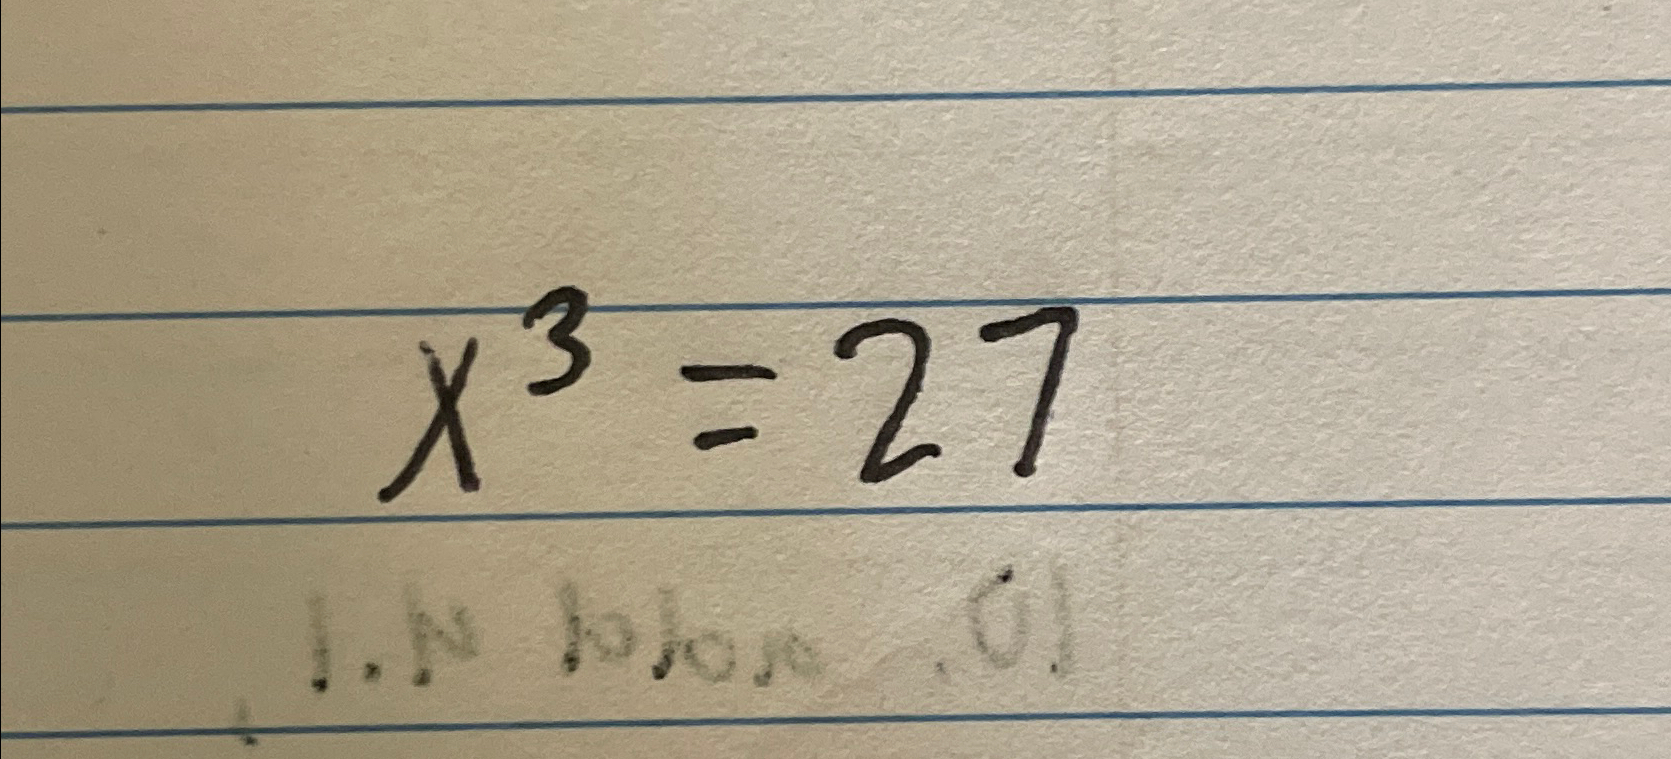 x³ = 27